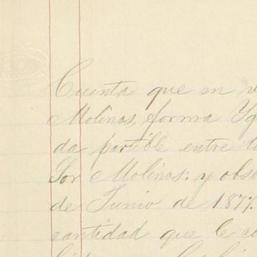 Cuenta que en
Molinas, forma Yg
da partible entre
Sor Molinas: y obse
de Junio de 1877.
cantidad que le co